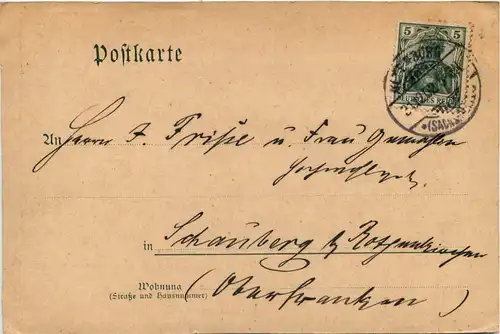 Postkarte
5 5
DEUTSCHES REICH
(SACHS.
An Herrn F. Friße u. Frau Gemahlin
Hochwohlgeb.
in Schauberg b/ Rothenkirchen
Wohnung (Oberfranken)
(Straße und Hausnummer)